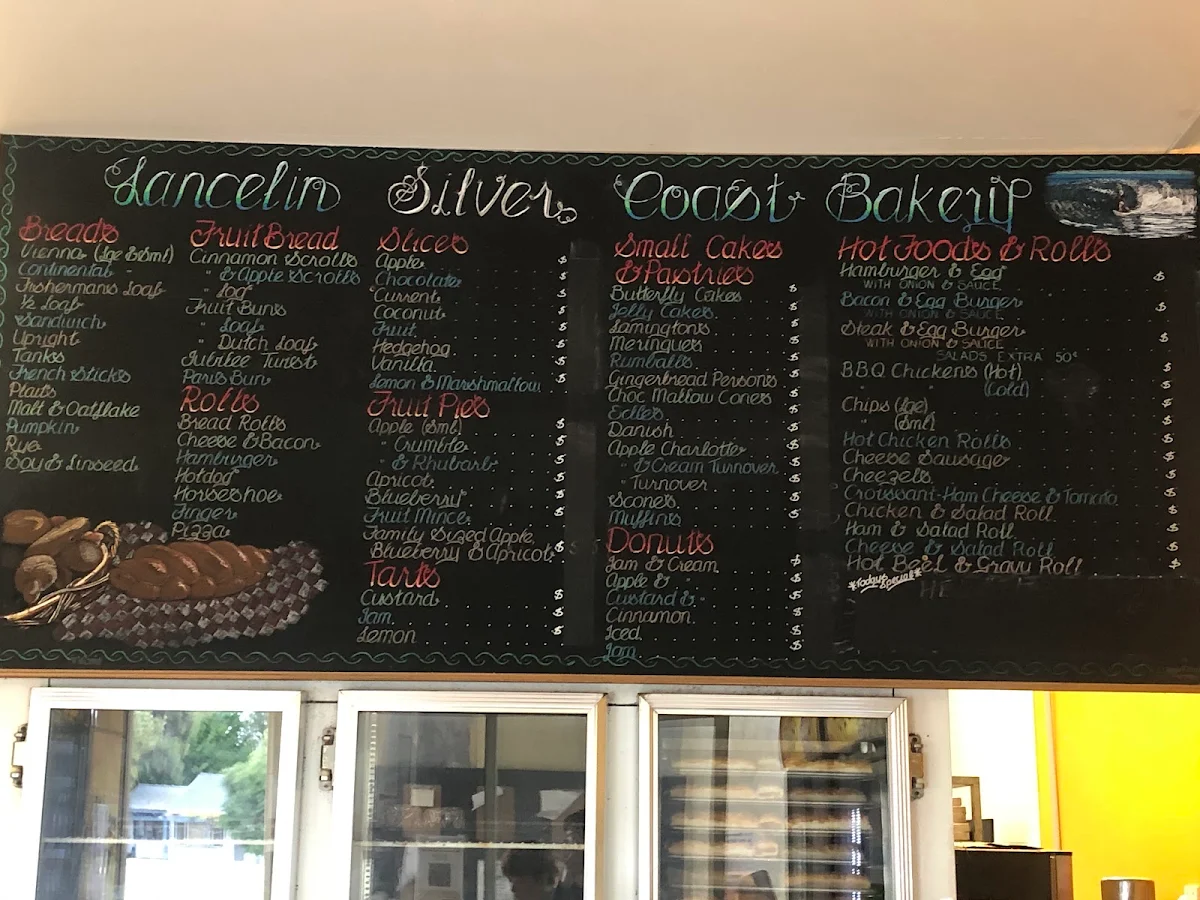 Lancelin Silver Coast Bakery
Breads
Vienna (lge & Sml)
Continental "
Fishermans Loaf
½ Loaf
Sandwich
Upright
Tanks
French Sticks
Plaits
Malt & Oatflake
Pumpkin
Rye
Soy & Linseed
Fruit Bread
Cinnamon Scrolls
" & Apple Scrolls
" Loaf
Fruit Buns
" Loaf
" Dutch Loaf
Jubilee Twist
Paris Bun
Rolls
Bread Rolls
Cheese & Bacon
Hamburger
Hotdog
Horseshoe
Finger
Pizza
Slices
Apple $
Chocolate $
Current $
Coconut $
Fruit $
Hedgehog $
Vanilla $
Lemon & Marshmallow $
Fruit Pies
Apple (Sml) $
" Crumble $
" & Rhubarb $
Apricot $
Blueberry $
Fruit Mince $
Family Sized Apple,
Blueberry & Apricot $
Tarts
Custard $
Jam $
Lemon $
Small Cakes
& Pastries
Butterfly Cakes $
Jelly Cakes $
Lamingtons $
Meringues $
Rumballs $
Gingerbread Persons $
Choc Mallow Cones $
Eccles $
Danish $
Apple Charlotte $
" & Cream Turnover $
" Turnover $
Scones $
Muffins $
Donuts
Jam & Cream $
Apple & " $
Custard & " $
Cinnamon $
Iced $
Jam $
Hot Foods & Rolls
Hamburger & Egg $
WITH ONION & SAUCE
Bacon & Egg Burger $
WITH ONION & SAUCE
Steak & Egg Burger $
WITH ONION & SAUCE
SALADS EXTRA 50¢
BBQ Chickens (Hot) $
" " (Cold) $
Chips (lge) $
" (Sml) $
Hot Chicken Rolls $
Cheese Sausage $
Cheezels $
Croissant-Ham Cheese & Tomato $
Chicken & Salad Roll $
Ham & Salad Roll $
Cheese & Salad Roll $
Hot Beef & Gravy Roll $
*Todays Special*